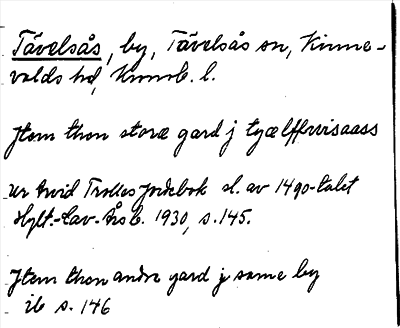 Tävelsås, by, Tävelsås sn, Kinne-
valds hd, Kronob. l.
Jtem thon store gard j tyælffwisaass
ur Arvid Trolles Jordebok sl. av 1490-talet
Hylt.-Cav. Årsb. 1930, s. 145.
Jtem thon andre gard j same by
ib s. 146